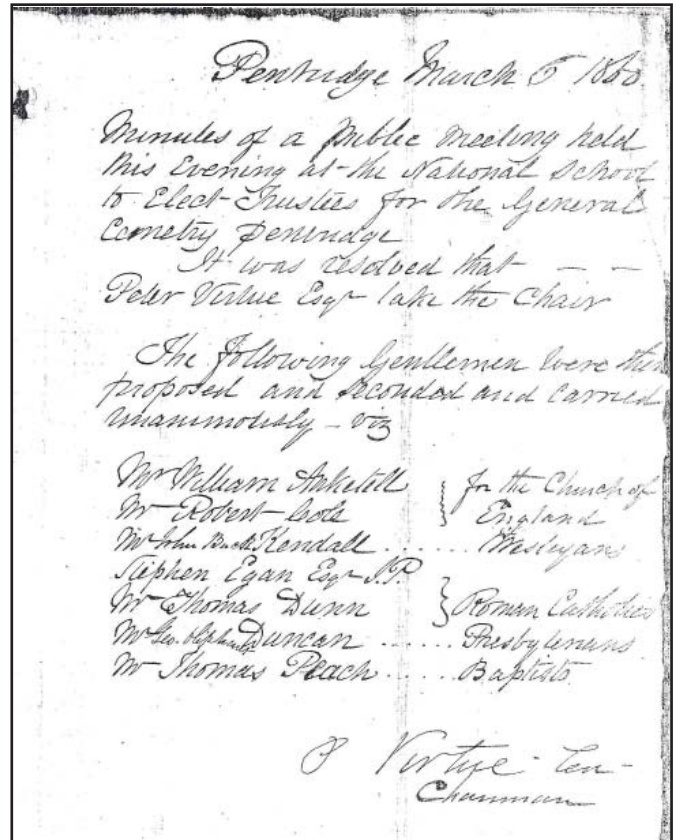 Pentridge March 6 1860
Minutes of a public meeting held
this Evening at the National School
to Elect Trustees for the General
Cemetry Pentridge
It was resolved that - -
Peter Virtue Esqr take the Chair
The following Gentlemen were then
proposed and seconded and carried
unanimously - viz
Mr William Anketell } for the Church of
Mr Robert Cole England
Mr John Buck Kendall ...... Wesleyans
Stephen Egan Esqr J.P.
Mr Thomas Dunn } Roman Catholics
Mr Geo. Duncan ...... Presbyterians
Mr Thomas Peach ..... Baptists
P Virtue
Chairman